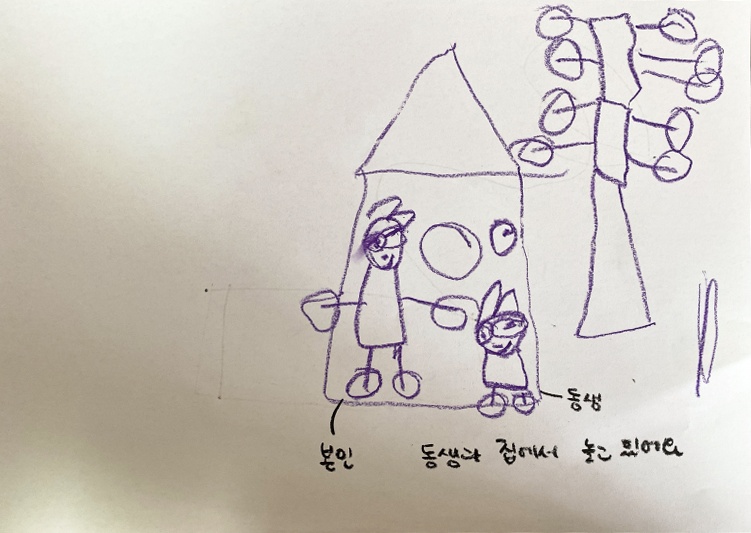 동생
본인
동생과 집에서 놀고 있어요